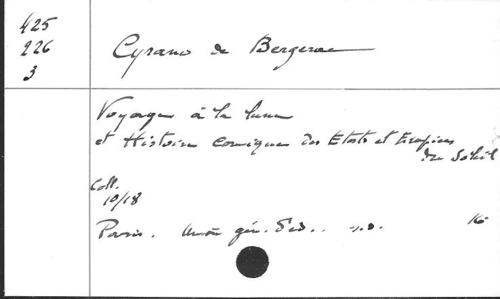 425
226
3
Cyrano de Bergerac
Voyages à la lune
et Histoire comique des Etats et Empires
du Soleil
Coll.
10/18
Paris. Union gén. d'éd.. s.d. 16-